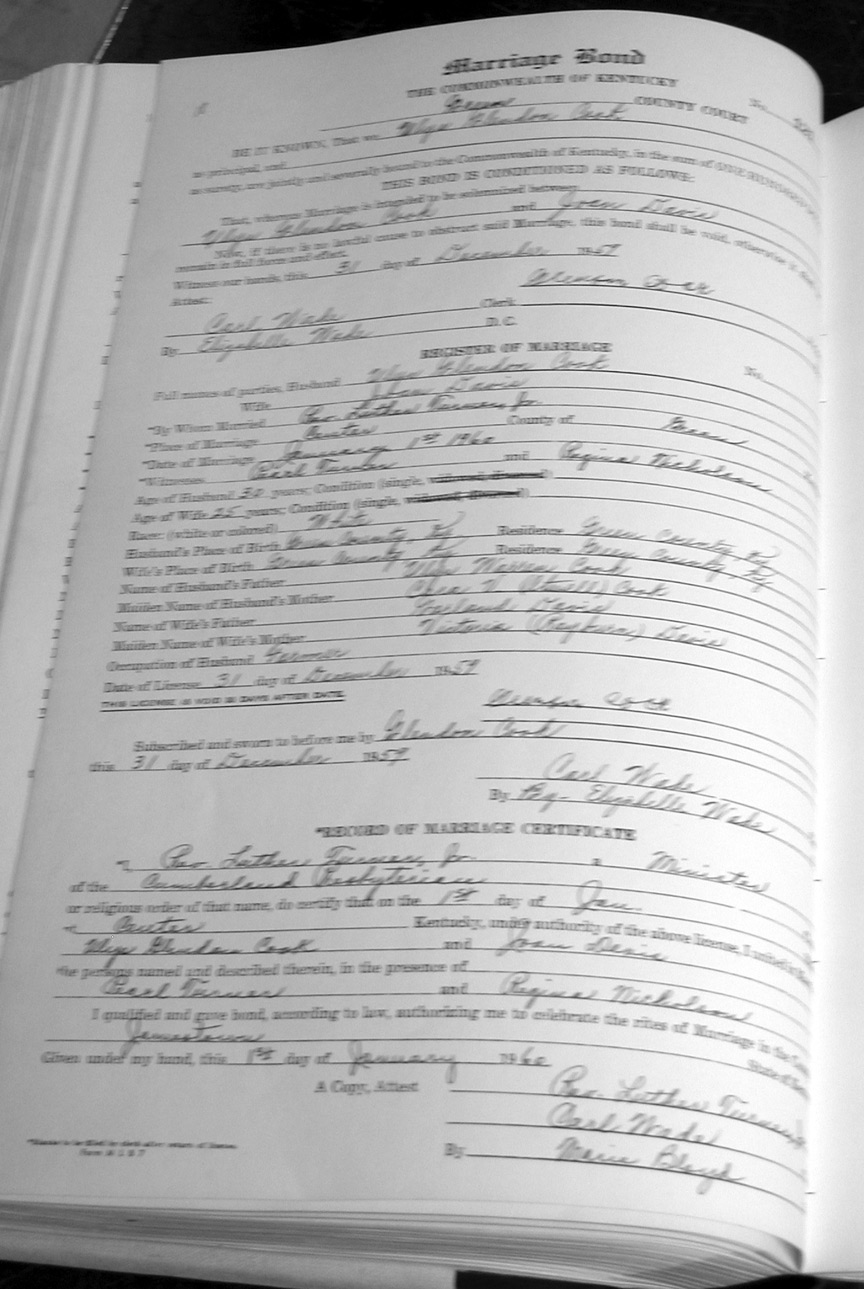 Marriage Bond
THE COMMONWEALTH OF KENTUCKY
Green COUNTY COURT
No.
BE IT KNOWN, That we Glendon Cook
as principal, and
as surety, are jointly and severally bound to the Commonwealth of Kentucky, in the sum of ONE HUNDRED
THIS BOND IS CONDITIONED AS FOLLOWS:
That, whereas Marriage is intended to be solemnized between
Glendon Cook and Joan Davis
Now, if there is no lawful cause to obstruct said Marriage, this bond shall be void, otherwise it shall
remain in full force and effect.
Witness our hands, this 31 day of December 1959
Attest:
Carl Wade Clerk
By Elizabelle Wade D. C.
REGISTER OF MARRIAGE
No.
Full names of parties, Husband Glendon Cook
Wife Joan Davis
*By Whom Married Rev. Luther Turner, Jr.
*Place of Marriage Center County of Green
*Date of Marriage January 1st 1960
*Witnesses Pearl Turner and Regina Nicholson
Age of Husband 30 years; Condition (single, widowed, divorced)
Age of Wife 25 years; Condition (single, widowed, divorced)
Race: (white or colored) White
Husband's Place of Birth Green County, Ky Residence Green County, Ky
Wife's Place of Birth Green County, Ky Residence Green County, Ky
Name of Husband's Father Warren Cook
Maiden Name of Husband's Mother V. Cook
Name of Wife's Father Garland Davis
Maiden Name of Wife's Mother Victoria (Rayburn) Davis
Occupation of Husband Farmer
Date of License 31 day of December 1959
THIS LICENSE IS VOID 30 DAYS AFTER DATE.
Subscribed and sworn to before me by Glendon Cook
this 31 day of December 1959
Carl Wade
By By- Elizabelle Wade
*RECORD OF MARRIAGE CERTIFICATE
I, Rev. Luther Turner, Jr. a Minister
of the Cumberland Presbyterian
or religious order of that name, do certify that on the 1st day of Jan.
at Center Kentucky, under authority of the above license, I united in
Glendon Cook and Joan Davis
the persons named and described therein, in the presence of
Pearl Turner and Regina Nicholson
I qualified and gave bond, according to law, authorizing me to celebrate the rites of Marriage in the
Jamestown State of
Given under my hand, this 1st day of January 1960
Rev. Luther Turner, Jr.
A Copy, Attest
Carl Wade
By Marie Bloyd